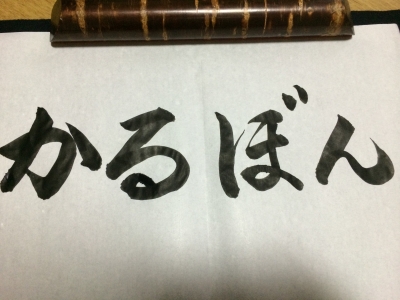 かるぼん